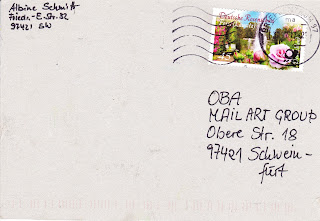 Albine Schmitt
Friedr.-E.-Str. 32
97421 SW
Deutsche Post
OBA
MAIL ART GROUP
Obere Str. 18
97421 Schwein-
furt